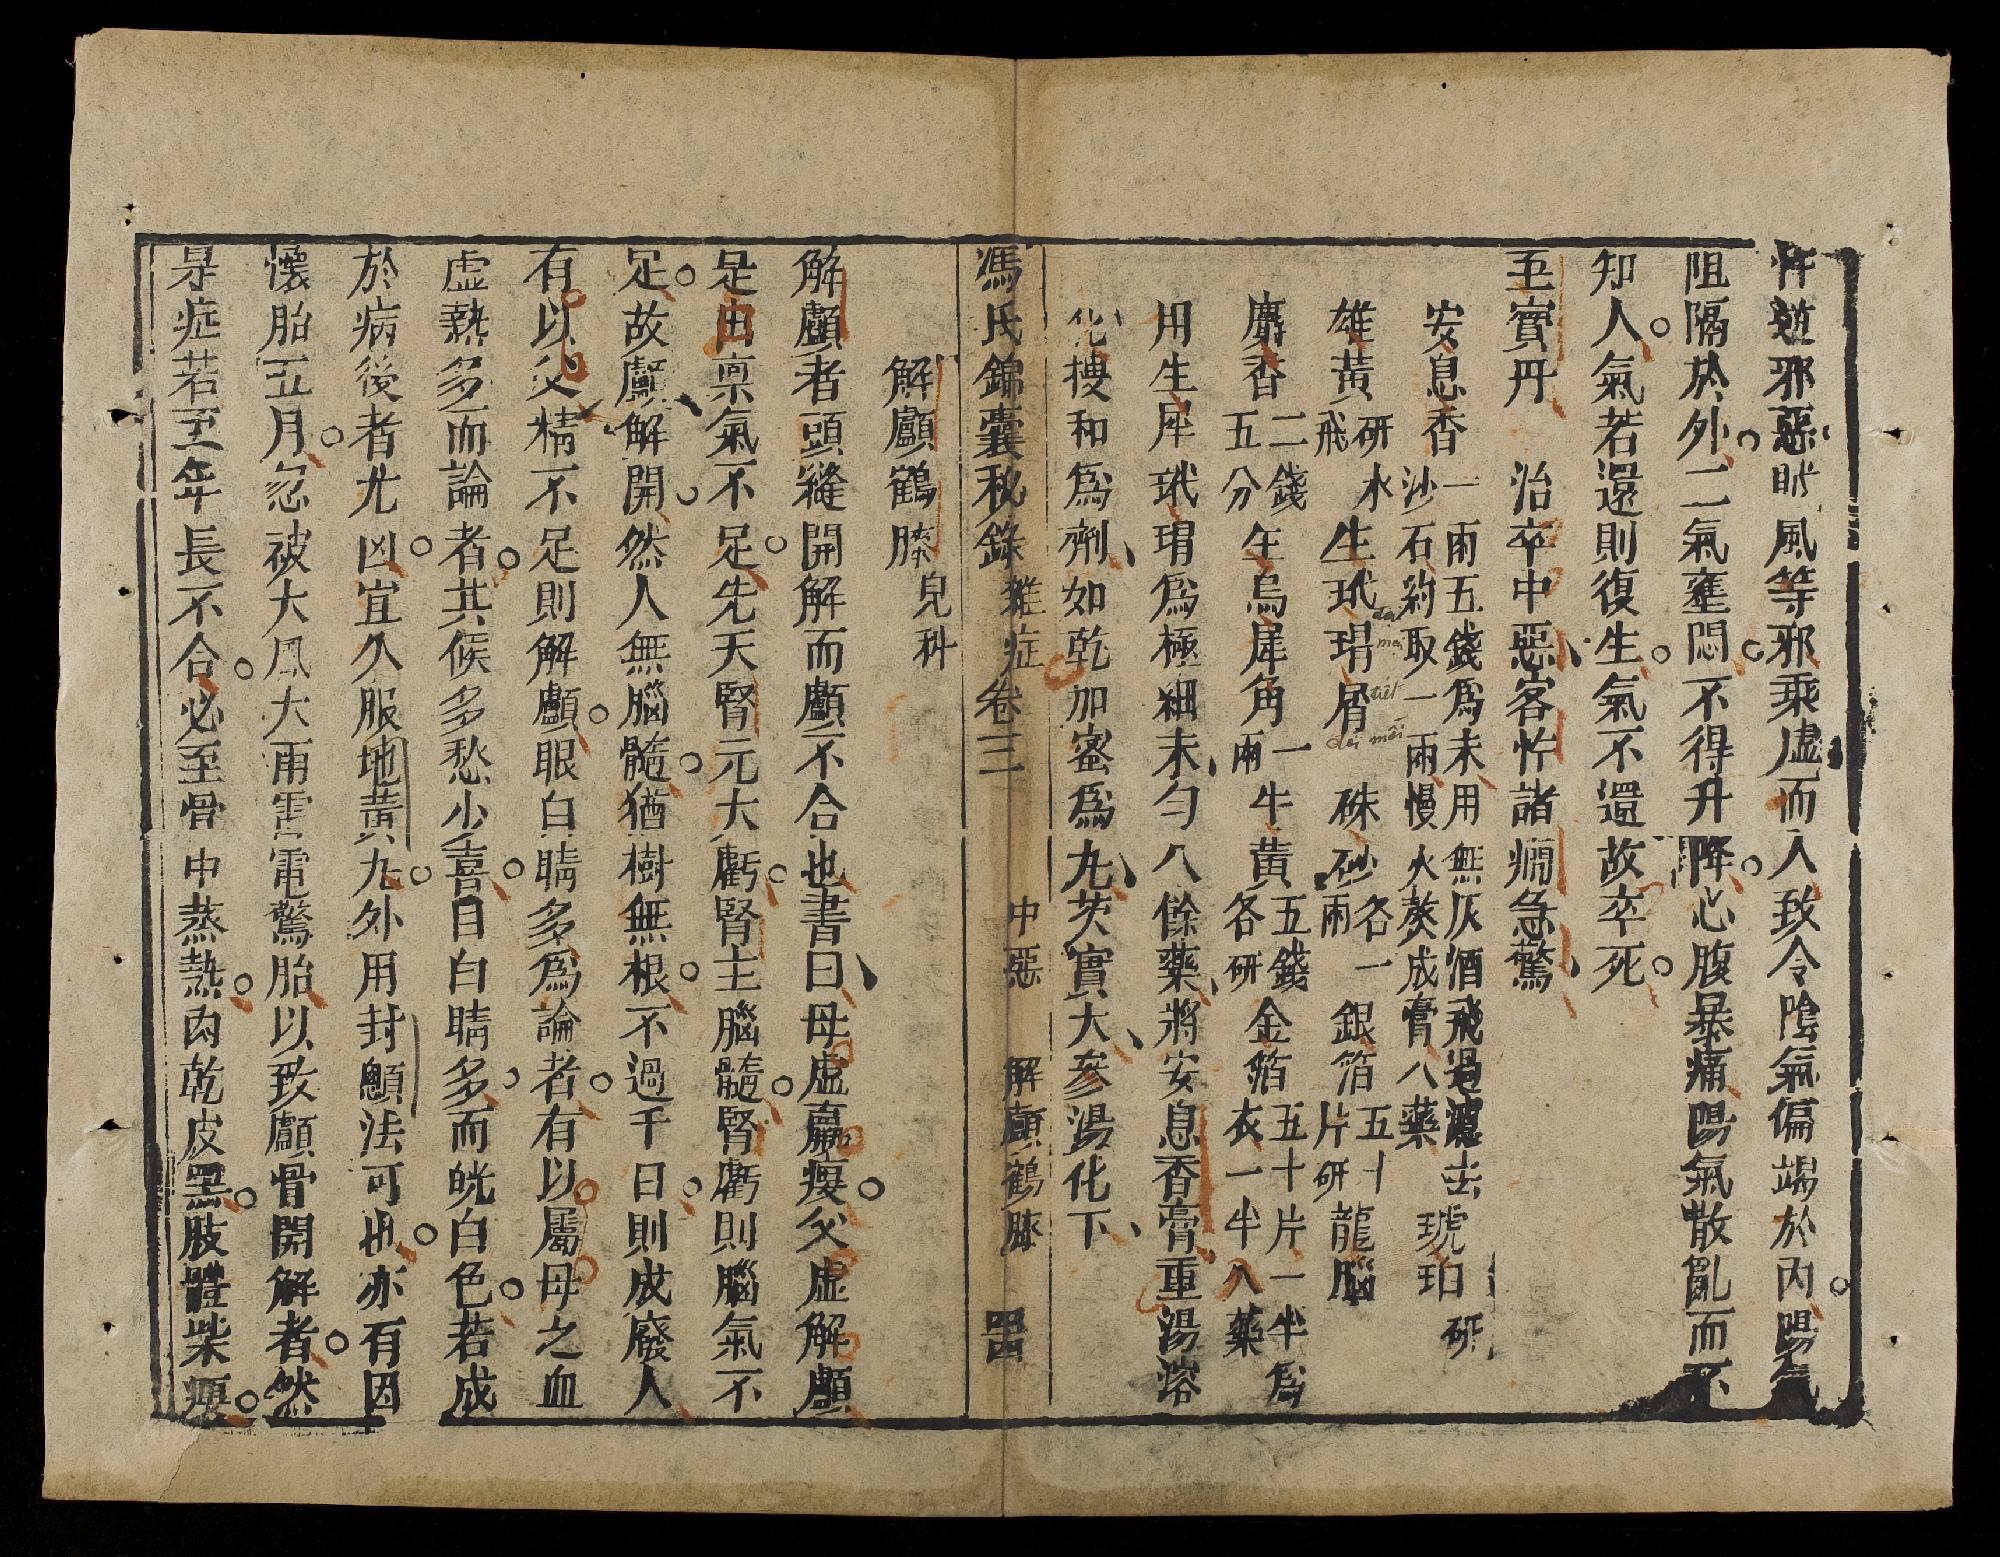 忤逆邪惡眦風等邪乘虛而入致令陰氣偏竭於內陽氣
阻隔於外二氣壅悶不得升降心腹暴痛陽氣散亂而不
知人氣若還則復生氣不還故卒死
至寶丹 治卒中惡客忤諸癇急驚
安息香一兩五錢為末用無灰酒飛過濾去沙石約取一兩慢火熬成膏入藥 琥珀研
雄黃研飛水 生玳瑁屑 硃砂各一兩 銀箔五十片研 龍腦
麝香二錢五分 生烏犀角一兩 牛黃五錢各研 金箔五十片一半為衣一半入藥
用生犀玳瑁為極細末勻入餘藥將安息香膏重湯溶
化搜和為劑如乾加蜜為丸芡實大參湯化下
馮氏錦囊秘錄 雜症卷三 中惡 解顱鶴膝 四
解顱鶴膝 兒科
解顱者頭縫開解而顱不合也書曰母虛羸瘦父虛解顱
是由稟氣不足先天腎元大虧腎主腦髓腎虧則腦氣不
足故顱解開然人無腦髓猶樹無根不過千日則成廢人
有以父精不足則解顱眼白睛多為論者有以屬母之血
虛熱多而論者其候多愁少喜目白睛多而㿠白色若成
於病後者尤凶宜久服地黃丸外用封顖法可也亦有因
懷胎五月忽被大風大雨雷電驚胎以致顱骨開解者然
是症若至年長不合必至骨中蒸熱肉乾皮黑肢體柴瘦
dai mai
tiêt
dei mêi